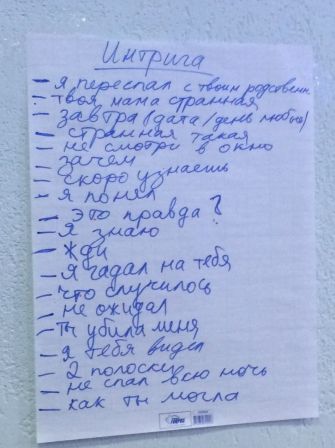 Интрига
— я переспал с твоим родственн.
— твоя мама странная
— завтра (дата/день любой)
— странная такая
— не смотри в окно
— зачем
— скоро узнаешь
— я понял
— это правда?
— я знаю
— жди
— я гадал на тебя
— что случилось
— не ожидал
— ты убила меня
— я тебя видел
— 2 полоски
— не спал всю ночь
— как ты могла